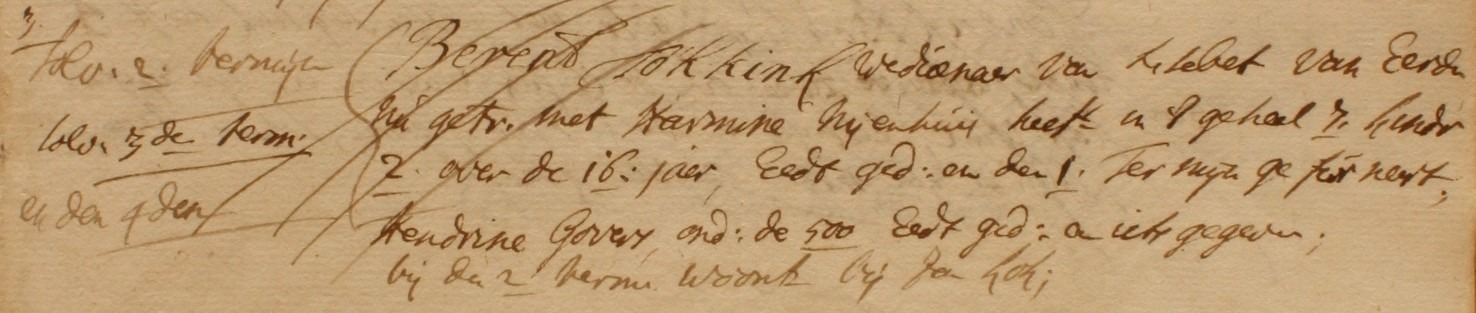 3.
solv. 2. termijn
solv. 3 de term:
en den 4den
Berent Kökkink Wedúwnaer van Lisebet van Eerdn
nú getr. met Harmine Nijenhúis heeft in 't geheel 7. kindr
2. over de 16: jaer, Eedt ged: en den 1. Termijn gefúrneert,
Hendrine Govers ond: de 500 Eedt ged: en iets gegeven,
bij den 2 termn woont bij Jan Kok;